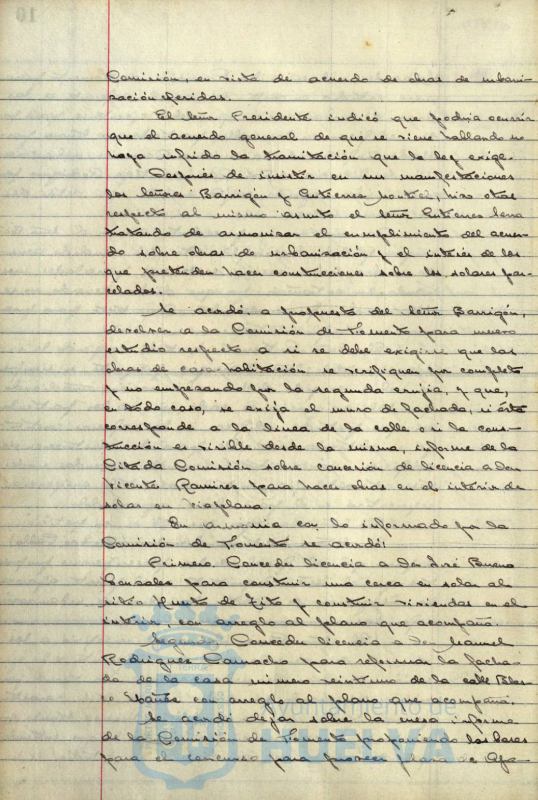 Comisión, en vista de acuerdo de obras de urbani-
zación referidas.
El Señor Presidente indicó que podría ocurrir
que el acuerdo general de que se viene hablando no
haya sufrido la tramitación que la ley exige.
Después de insistir en sus manifestaciones
los Señores Barrigón y Gutierrez Montiel, hizo otras
respecto al mismo asunto el Señor Gutierrez
tratando de armonizar el cumplimiento del acuer-
do sobre obras de urbanización y el interés de los
que pretenden hacer construcciones sobre los solares par-
celados.
Se acordó a propuesta del Señor Barrigón,
devolver a la Comisión de Fomento para nuevo
estudio respecto a si se debe exigirse que las
obras de casa habitación se verifiquen por completo
y no empezando por la segunda crujia, y que,
en todo caso, se exija el muro de fachada, si ésta
corresponde a la linea de la calle o si la cons-
trucción es visible desde la misma, informe de la
Citada Comisión sobre concesión de licencia a Don
Vicente Ramirez para hacer obras en el interior de
solar en Viaplana.
En armonia con lo informado por la
Comisión de Fomento se acordó:
Primero. Conceder licencia a Don José Bueno
Gonzalez para construir una cerca en solar al
sitio Huerto de y construir viviendas en el
interior, con arreglo al plano que acompaña.
Segundo. Conceder licencia a Don Manuel
Rodriguez Camacho para reformar la facha-
da de la casa número veintiuno de la calle Blas-
co Ibáñez con arreglo al plano que acompaña.
Se acordó dejar sobre la mesa informe
de la Comisión de Fomento proponiendo las bases
para el concurso para proveer plaza de Apa-
Ayuntamiento de
HUELVA